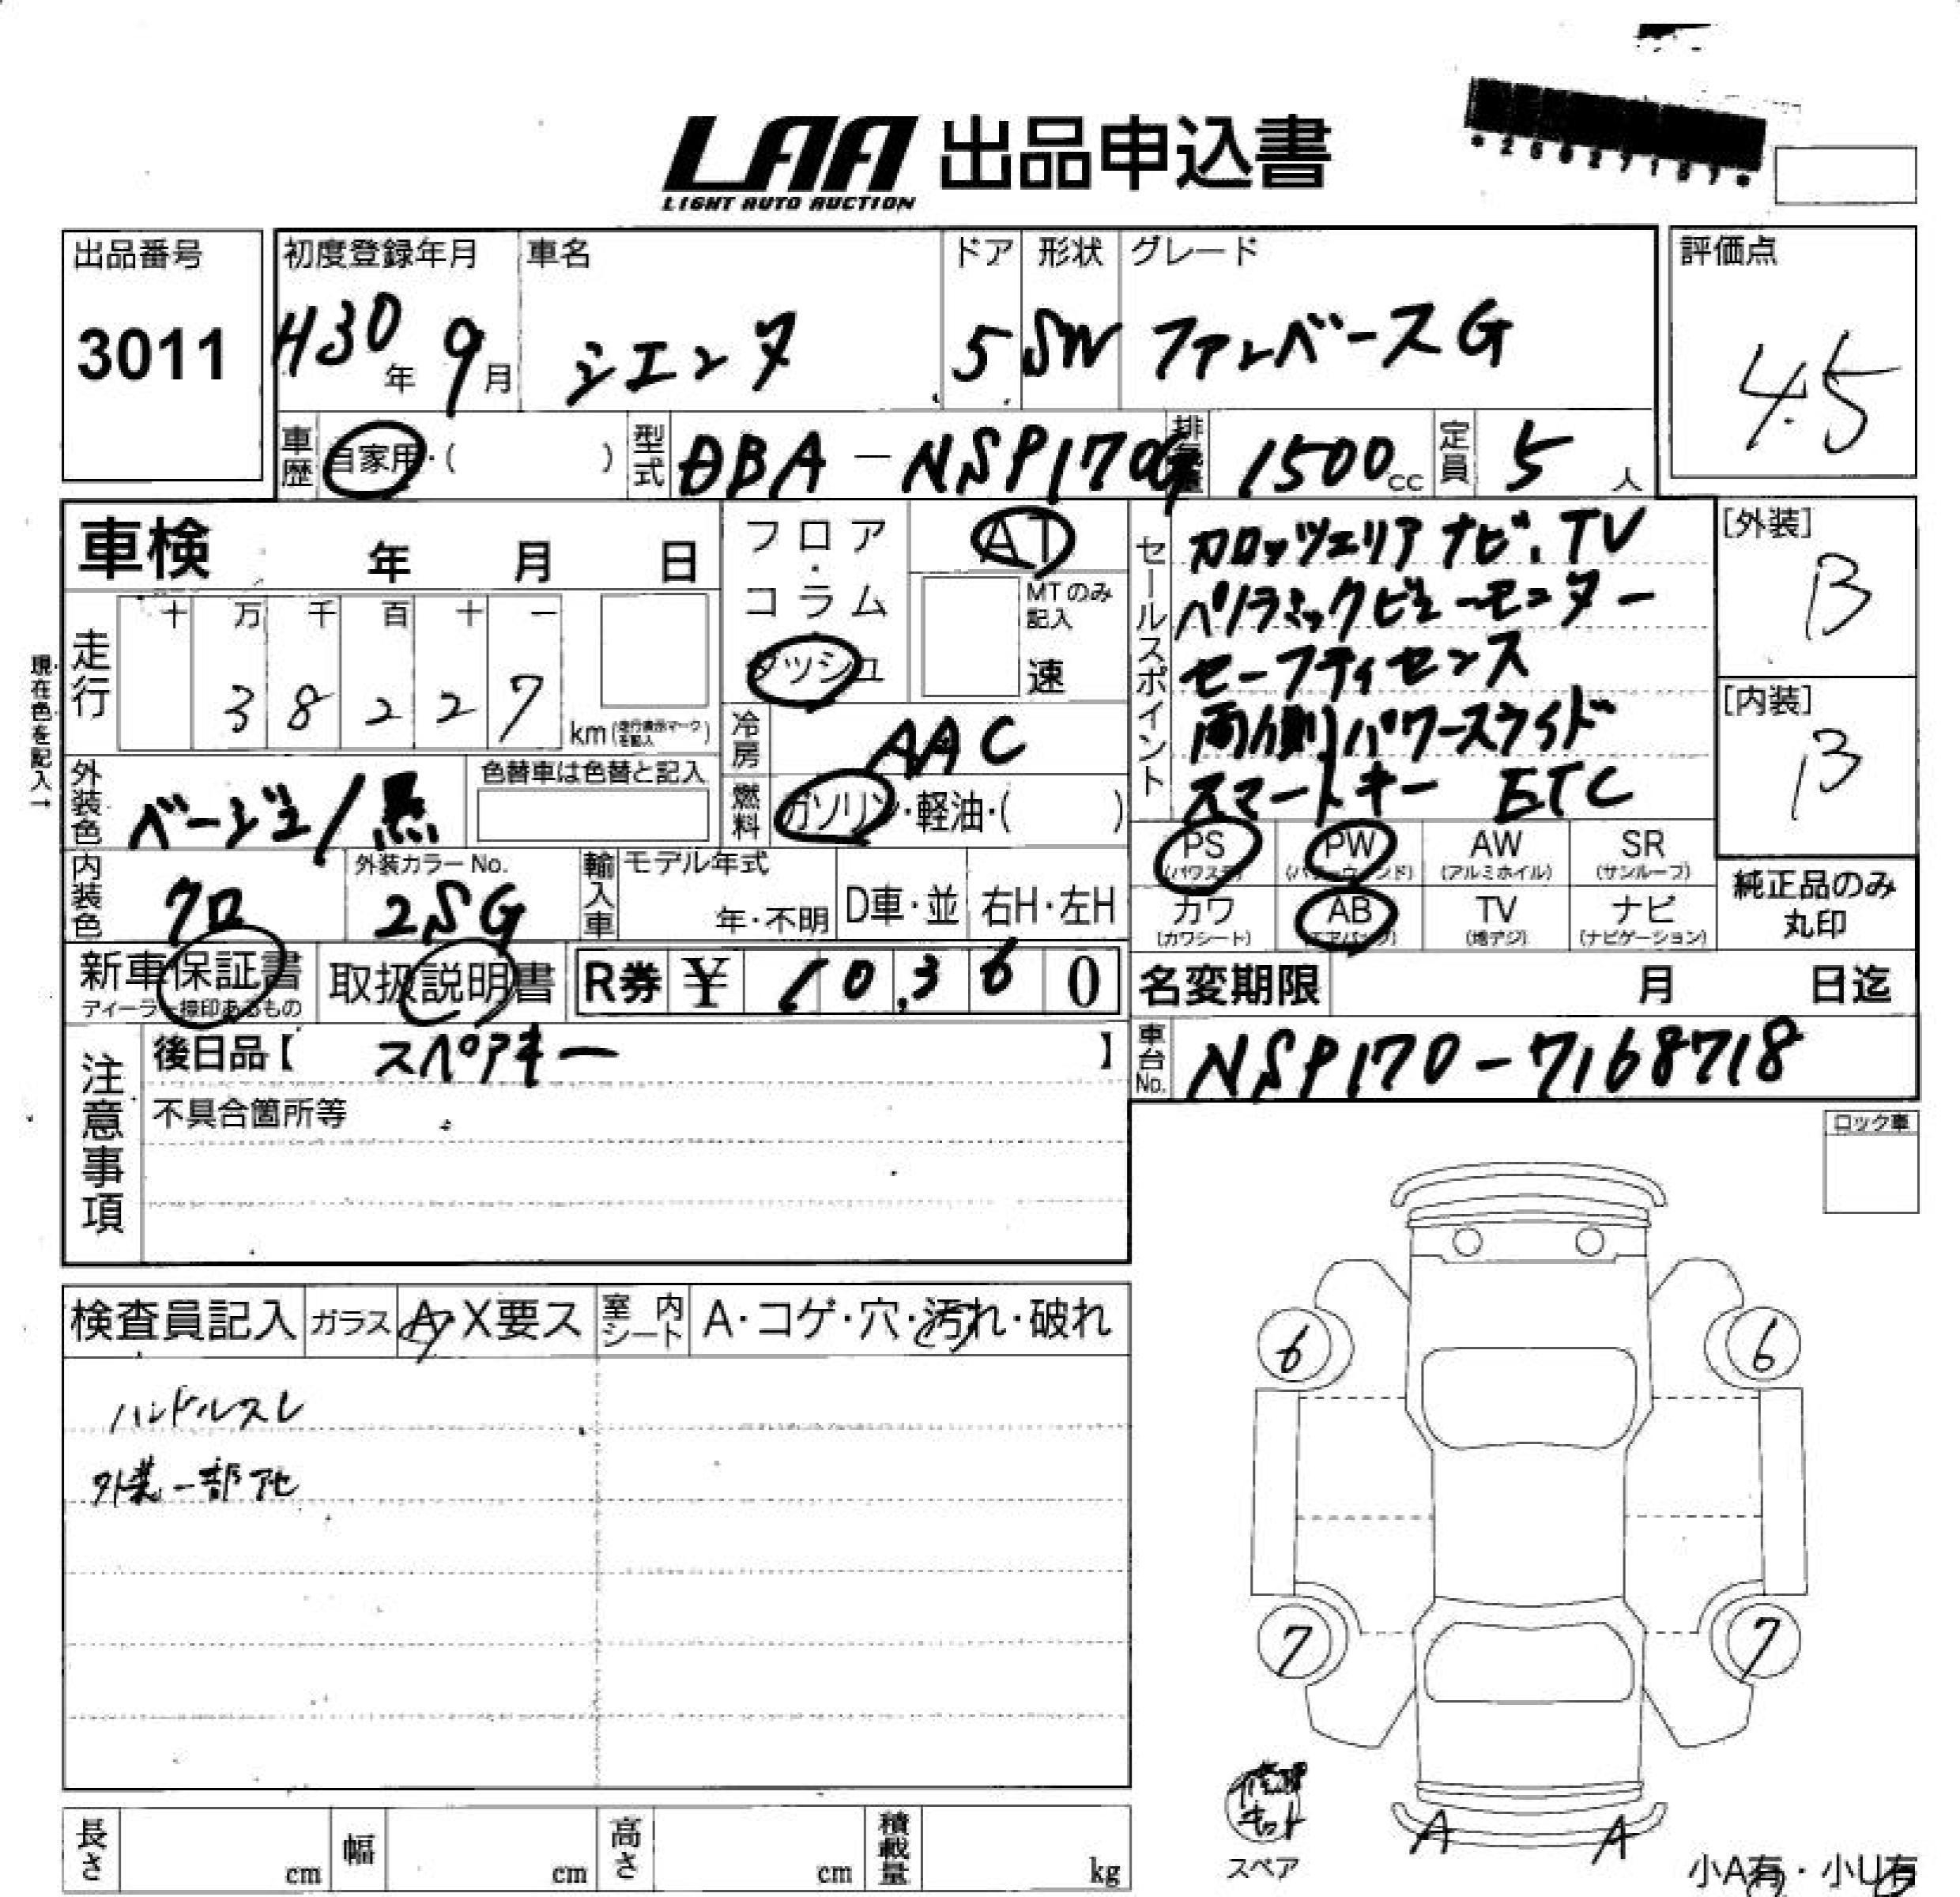 LAA 出品申込書
LIGHT AUTO AUCTION
出品番号
3011
初度登録年月
H30年 9月
車名
シエンタ
ドア
5
形状
SW
グレード
ファンベースG
評価点
4.5
車歴
自家用・( )
型式
DBA-NSP170G
排気量
1500cc
定員
5人
車検 年 月 日
走行
十 万 千 百 十 一
3 8 2 2 7
km (走行表示マークを記入)
現在色を記入→
フロア・コラム
ダッシュ
AT
MTのみ記入
速
冷房
AAC
燃料
ガソリン・軽油・( )
セールスポイント
カロッツェリア ナビ、TV
パノラミックビューモニター
セーフティセンス
両側パワースライド
スマートキー ETC
[外装]
B
[内装]
B
外装色
ベージュ/黒
色替車は色替と記入
内装色
クロ
外装カラーNo.
2SG
輸入車
モデル年式
年・不明
D車・並
右H・左H
PS (パワステ)
PW (パワーウィンド)
AW (アルミホイル)
SR (サンルーフ)
カワ (カワシート)
AB (エアバック)
TV (地デジ)
ナビ (ナビゲーション)
純正品のみ丸印
新車保証書
ディーラー捺印あるもの
取扱説明書
R券 ¥ 10,360
名変期限 月 日迄
車台No.
NSP170-7168718
注意事項
後日品【 スペアキー 】
不具合箇所等
ロック車
検査員記入
ガラス
A・X要ス
室内シート
A・コゲ・穴・汚れ・破れ
ハンドルスレ
外装一部アセ
6 6
7 7
キット
スペア
A A
小A有・小U有
長さ cm
幅 cm
高さ cm
積載量 kg